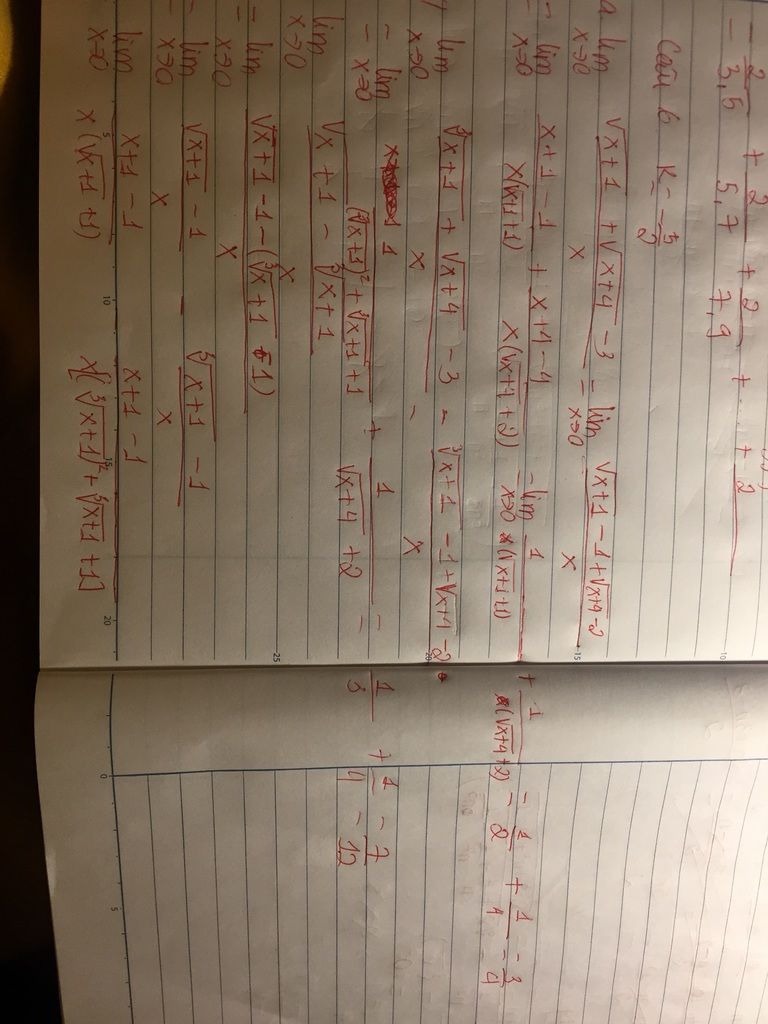 - 2/3,5 + 2/5,7 + 2/7,9 + ... + 2
Câu 6 K = -5/2
a lim x→0 (√x+1 + √x+4 - 3)/x = lim x→0 (√x+1 - 1 + √x+4 - 2)/x
= lim x→0 (x+1-1)/(x(√x+1 +1)) + (x+4-4)/(x(√x+4 +2)) = lim x→0 1/(√x+1 +1) + 1/(√x+4 +2) = 1/2 + 1/4 = 3/4
lim x→0 (∛x+1 + √x+4 - 3)/x = (∛x+1 - 1 + √x+4 - 2)/x
= lim x→0 1/((∛x+1)² + ∛x+1 + 1) + 1/(√x+4 + 2) = 1/3 + 1/4 = 7/12
lim x→0 (√x+1 - ∛x+1)/x
= lim x→0 (√x+1 - 1 - (∛x+1 - 1))/x
= lim x→0 (√x+1 - 1)/x - (∛x+1 - 1)/x
lim x→0 (x+1-1)/(x(√x+1 +1)) (x+1-1)/(x[(∛x+1)² + ∛x+1 + 1])